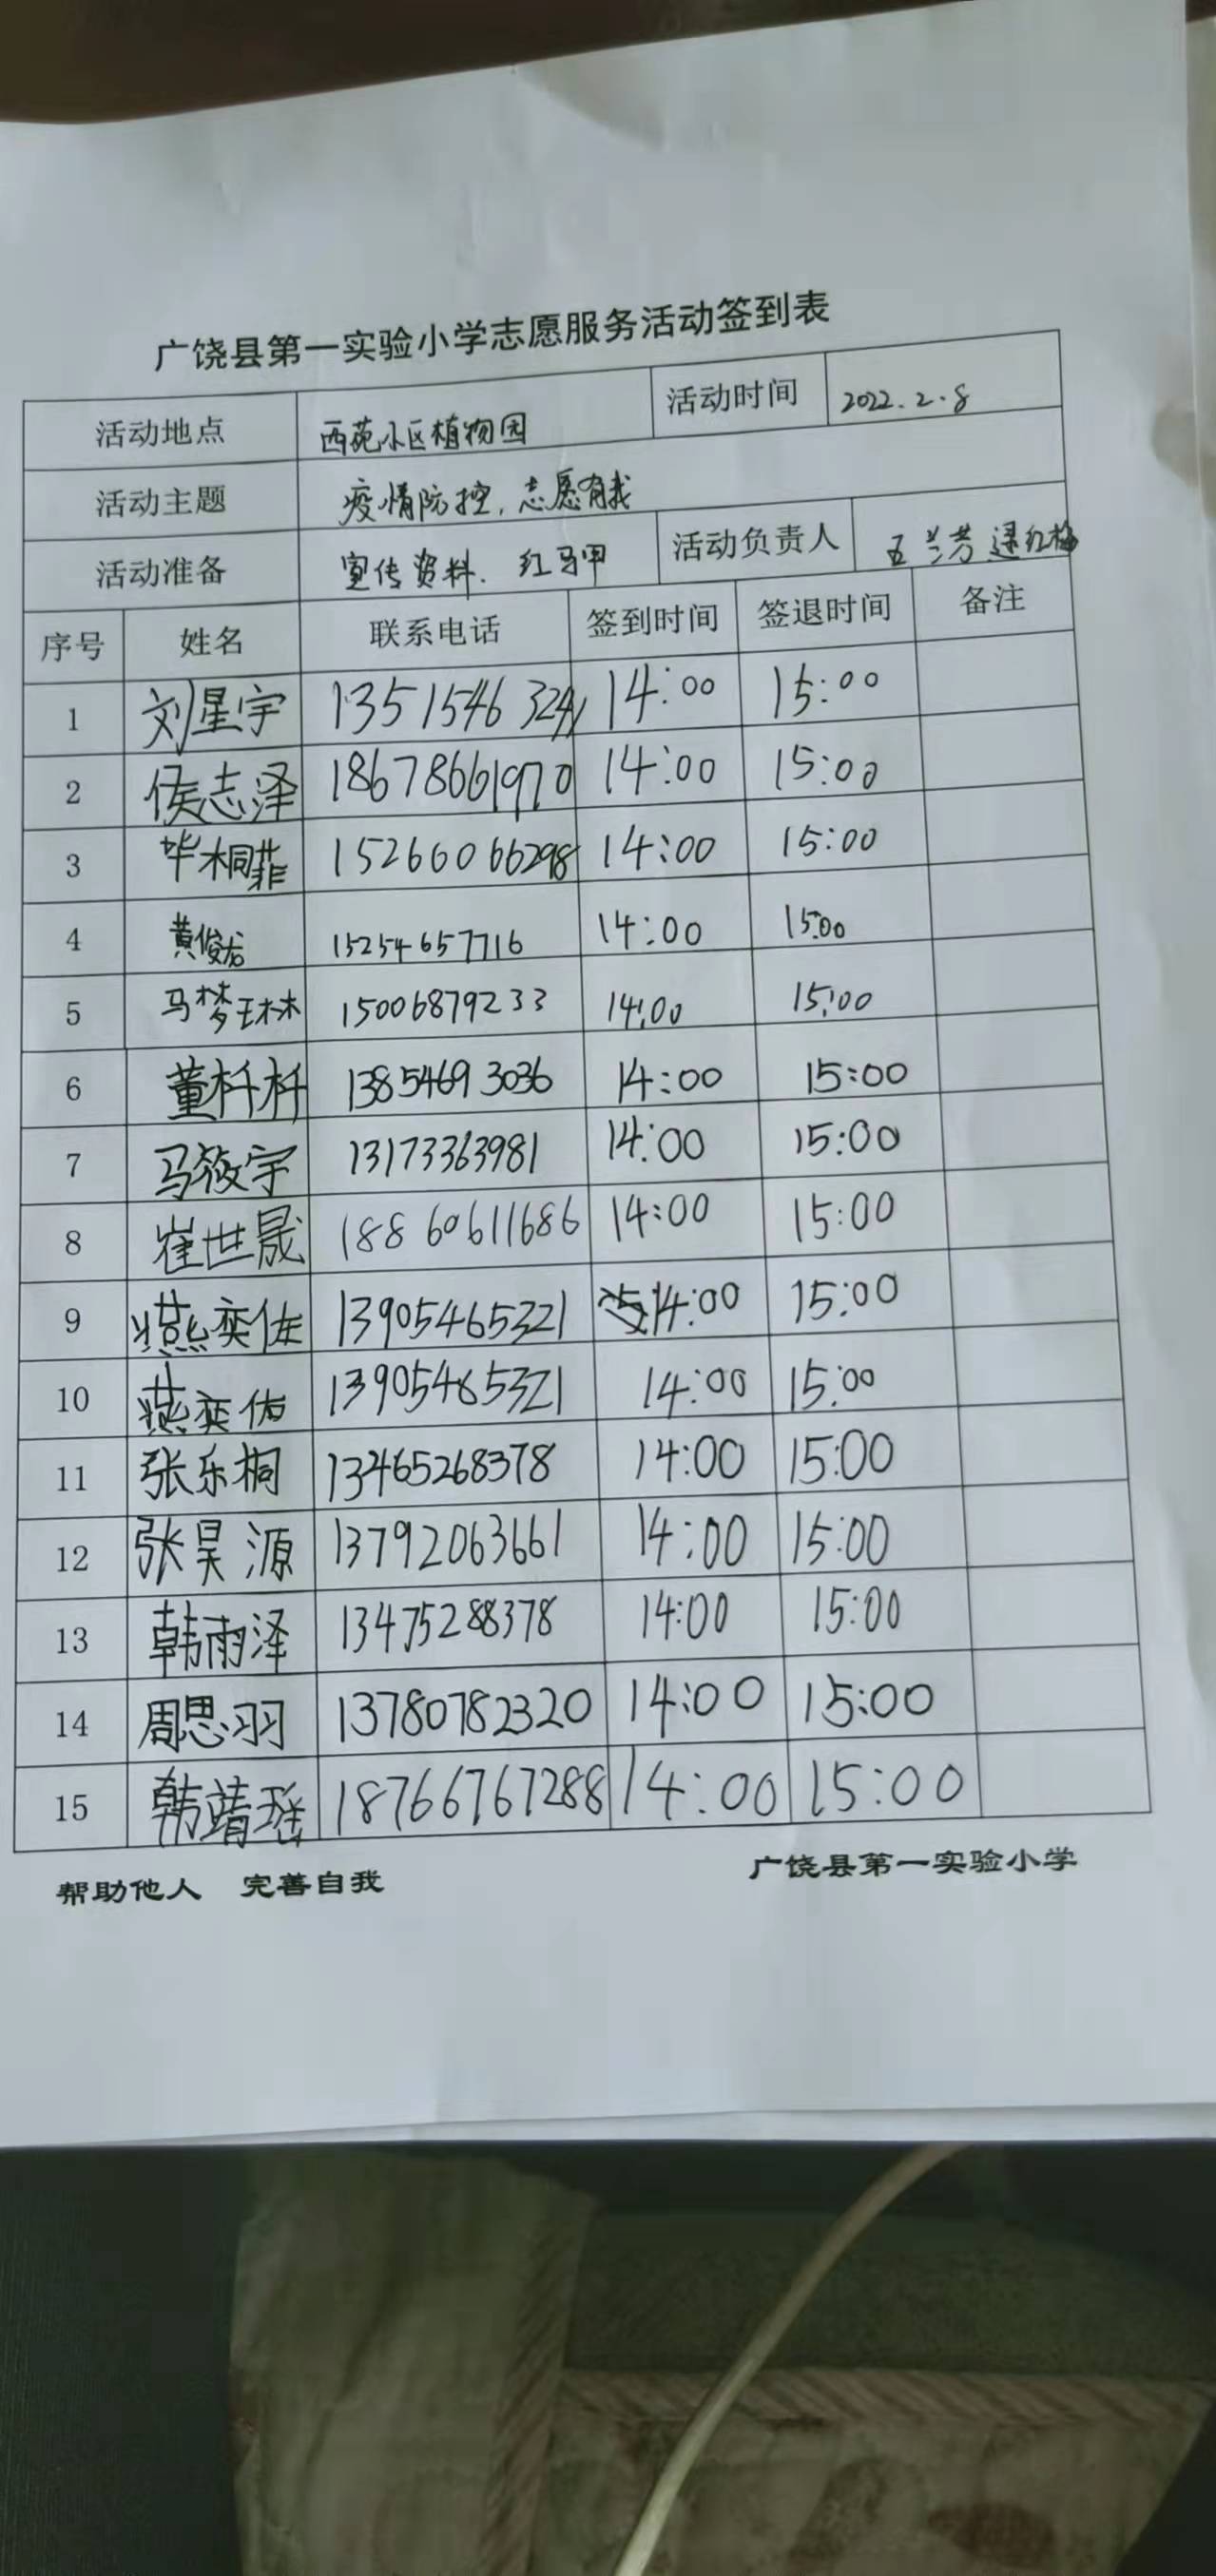 广饶县第一实验小学志愿服务活动签到表
活动地点 西苑小区植物园 活动时间 2022.2.8
活动主题 疫情防控,志愿有我
活动准备 宣传资料、红马甲 活动负责人 兰芳 红梅
序号 姓名 联系电话 签到时间 签退时间 备注
1 刘星宇 1351546 14:00 15:00
2 侯志泽 18678661970 14:00 15:00
3 毕桐菲 15266066298 14:00 15:00
4 黄俊龙 15254657716 14:00 15:00
5 马梦琳 15006879233 14:00 15:00
6 董杄杄 13854693036 14:00 15:00
7 马筱宇 13173363981 14:00 15:00
8 崔世晟 18860611686 14:00 15:00
9 燕奕佐 13905465321 14:00 15:00
10 燕奕佑 13905465321 14:00 15:00
11 张乐桐 13465268378 14:00 15:00
12 张昊源 13792063661 14:00 15:00
13 韩雨泽 13475288378 14:00 15:00
14 周思羽 13780782320 14:00 15:00
15 韩靖瑶 18766767288 14:00 15:00
帮助他人 完善自我 广饶县第一实验小学